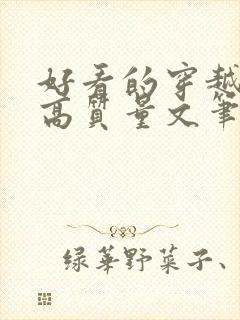 好看的穿越
高质量文笔
绿华野菜子、